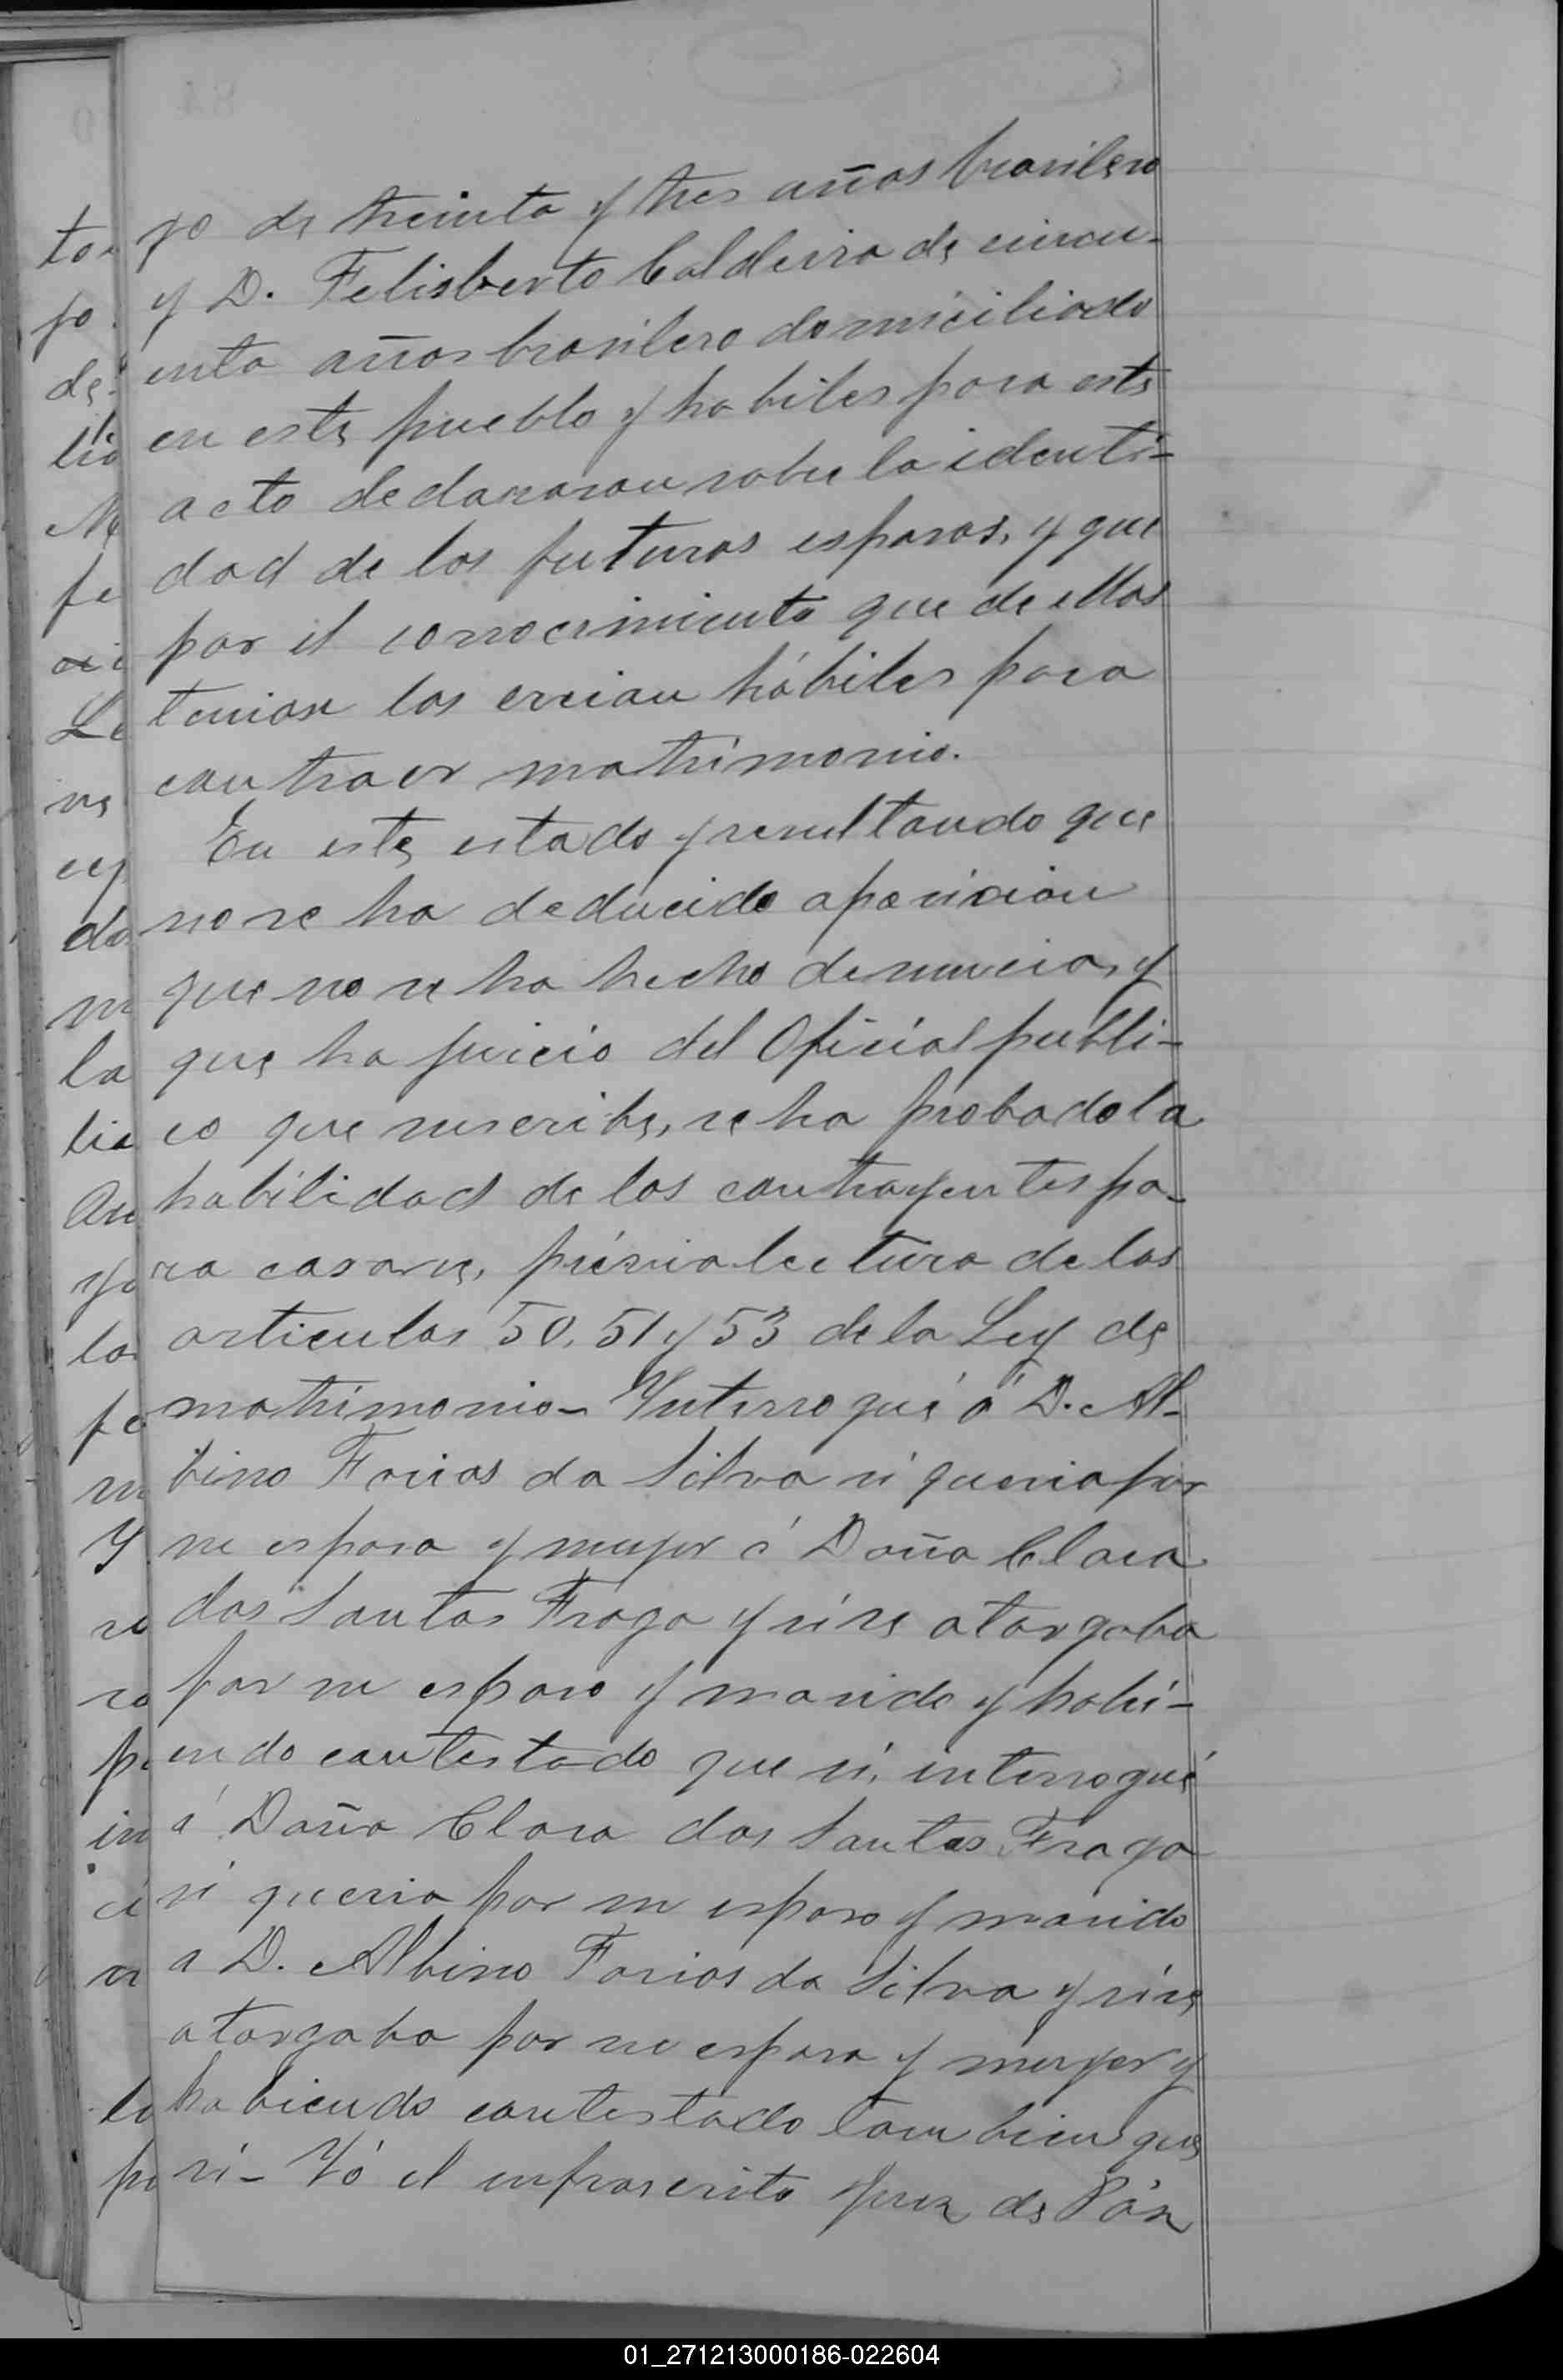 go de treinta y tres años brasilero
y D. Felisberto Caldeira de cincu-
enta años brasilero domiciliado
en este pueblo y habiles para este
acto declararon sobre la identi-
dad de los futuros esposos, y que
por el conocimiento que de ellos
tenian los creian hábiles para
contraer matrimonio.
En este estado y resultando que
no se ha deducido oposicion
que no se ha hecho denuncia, y
que ha juicio del Oficial publi-
co que suscribe, se ha probado la
habilidad de los contrayentes pa-
ra casarse, prévia lectura de los
articulos 50, 51 y 53 de la Ley de
matrimonio- Ynterrogué á D. Al-
bino Farias da Silva si queria por
su esposa y muger á Doña Clara
dos Santos Fraga y si se otorgaba
por su esposo y marido y habi-
endo contestado que si, interrogué
á Doña Clara dos Santos Fraga
si queria por su esposo y marido
a D. Albino Farias da Silva y si se
otorgaba por su esposa y muger y
habiendo contestado tambien que
si- Yó el infrascrito Juez de Páz
01_271213000186-022604